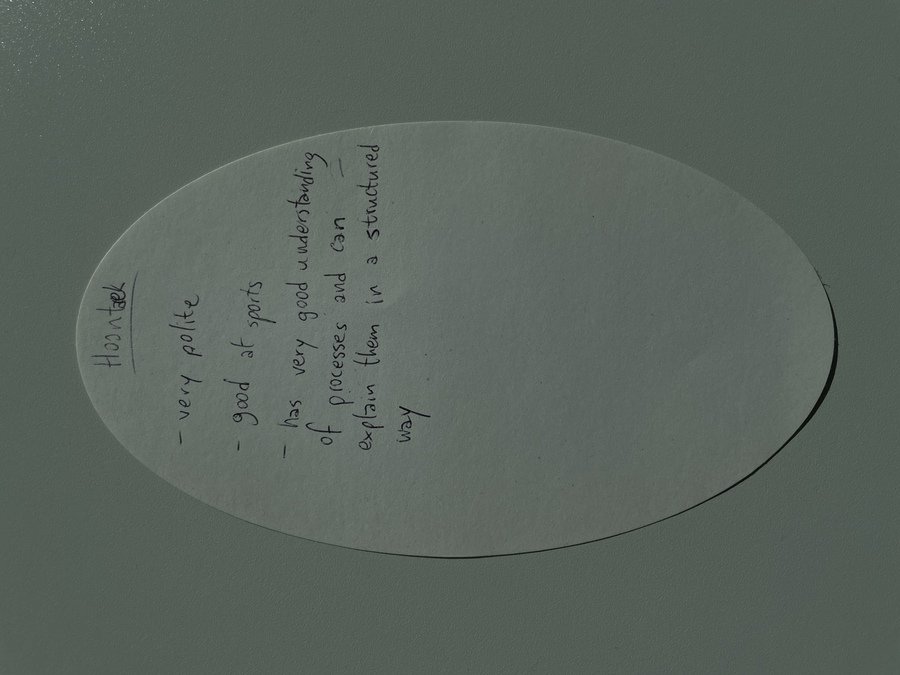 Hoontaek
- very polite
- good at sports
- has very good understanding
of processes and can
explain them in a structured
way